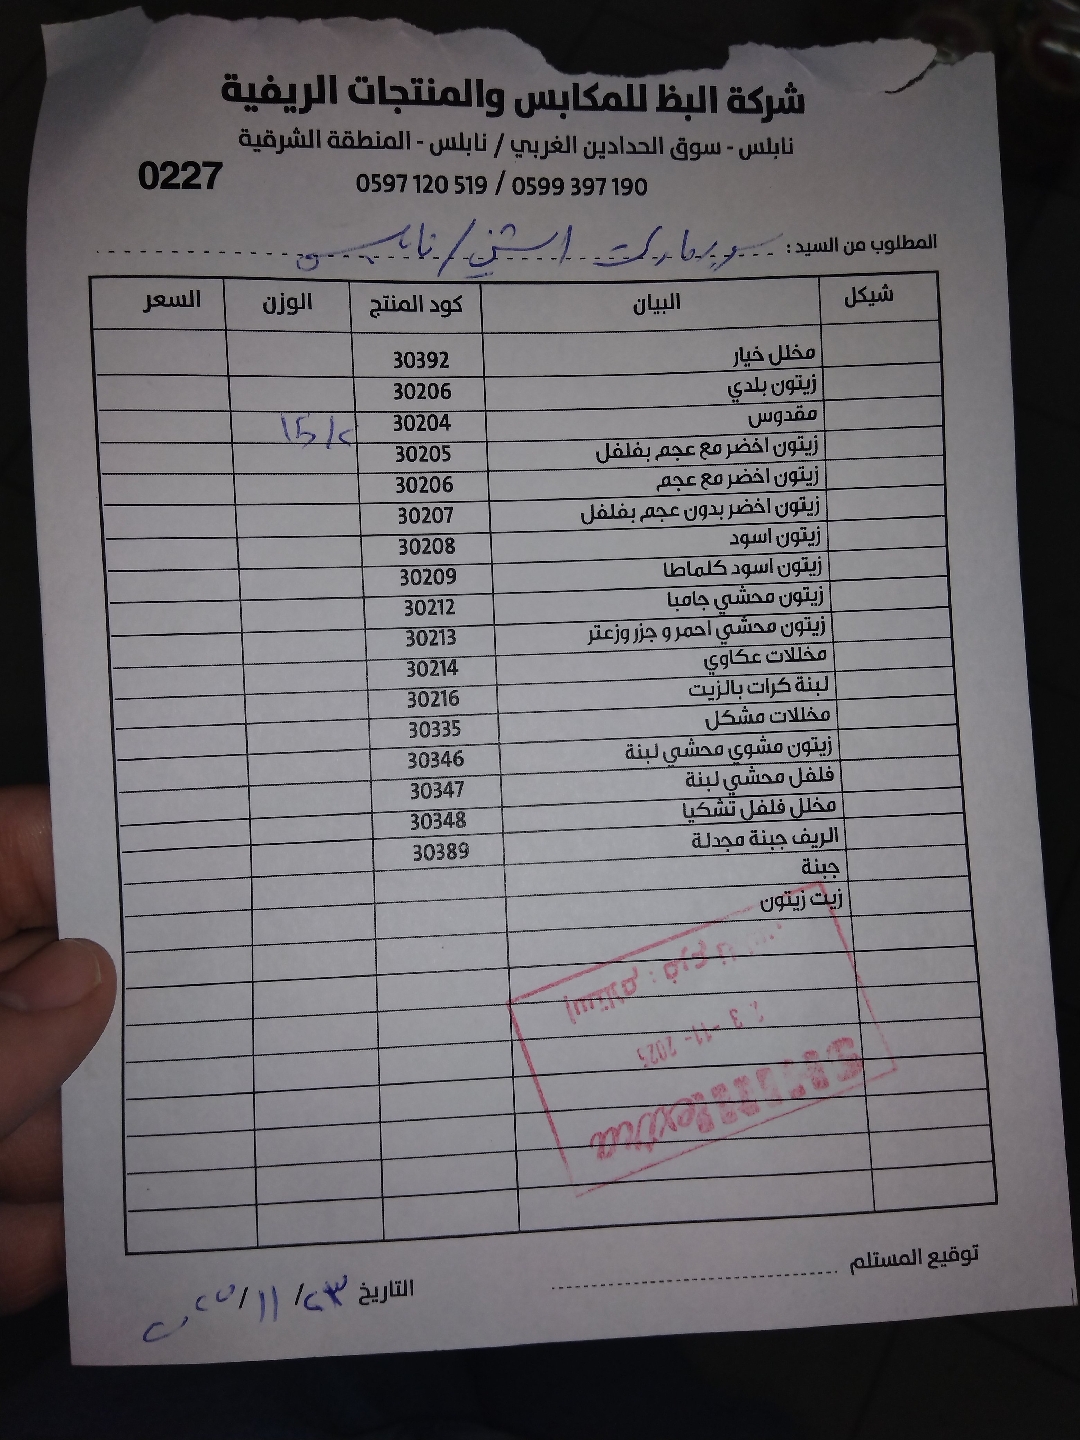 شركة البظ للمكابس والمنتجات الريفية
نابلس - سوق الحدادين الغربي / نابلس - المنطقة الشرقية
0597 120 519 / 0599 397 190
0227
المطلوب من السيد : سوبرماركت / نابلس
شيكل البيان كود المنتج الوزن السعر
مخلل خيار 30392
زيتون بلدي 30206
مقدوس 30204
زيتون اخضر مع عجم بفلفل 30205
زيتون اخضر مع عجم 30206
زيتون اخضر بدون عجم بفلفل 30207
زيتون اسود 30208
زيتون اسود كلماطا 30209
زيتون محشي جامبا 30212
زيتون محشي احمر و جزر وزعتر 30213
مخللات عكاوي 30214
لبنة كرات بالزيت 30216
مخللات مشكل 30335
زيتون مشوي محشي لبنة 30346
فلفل محشي لبنة 30347
مخلل فلفل تشكيا 30348
الريف جبنة مجدلة 30389
جبنة
زيت زيتون
توقيع المستلم
التاريخ ٢٣/١١/٢٠٢٥